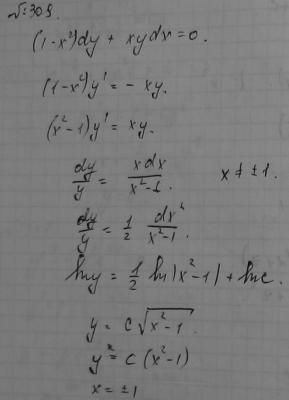 №309.
(1-x²)dy + xydx=0.
(1-x²)y' = - xy.
(x²-1)y' = xy.
dy/y = xdx/(x²-1). x ≠ ± 1.
dy/y = 1/2 dx²/(x²-1).
ln y = 1/2 ln|x²-1| + ln c.
y = c√(x²-1).
y² = c (x²-1)
x = ±1